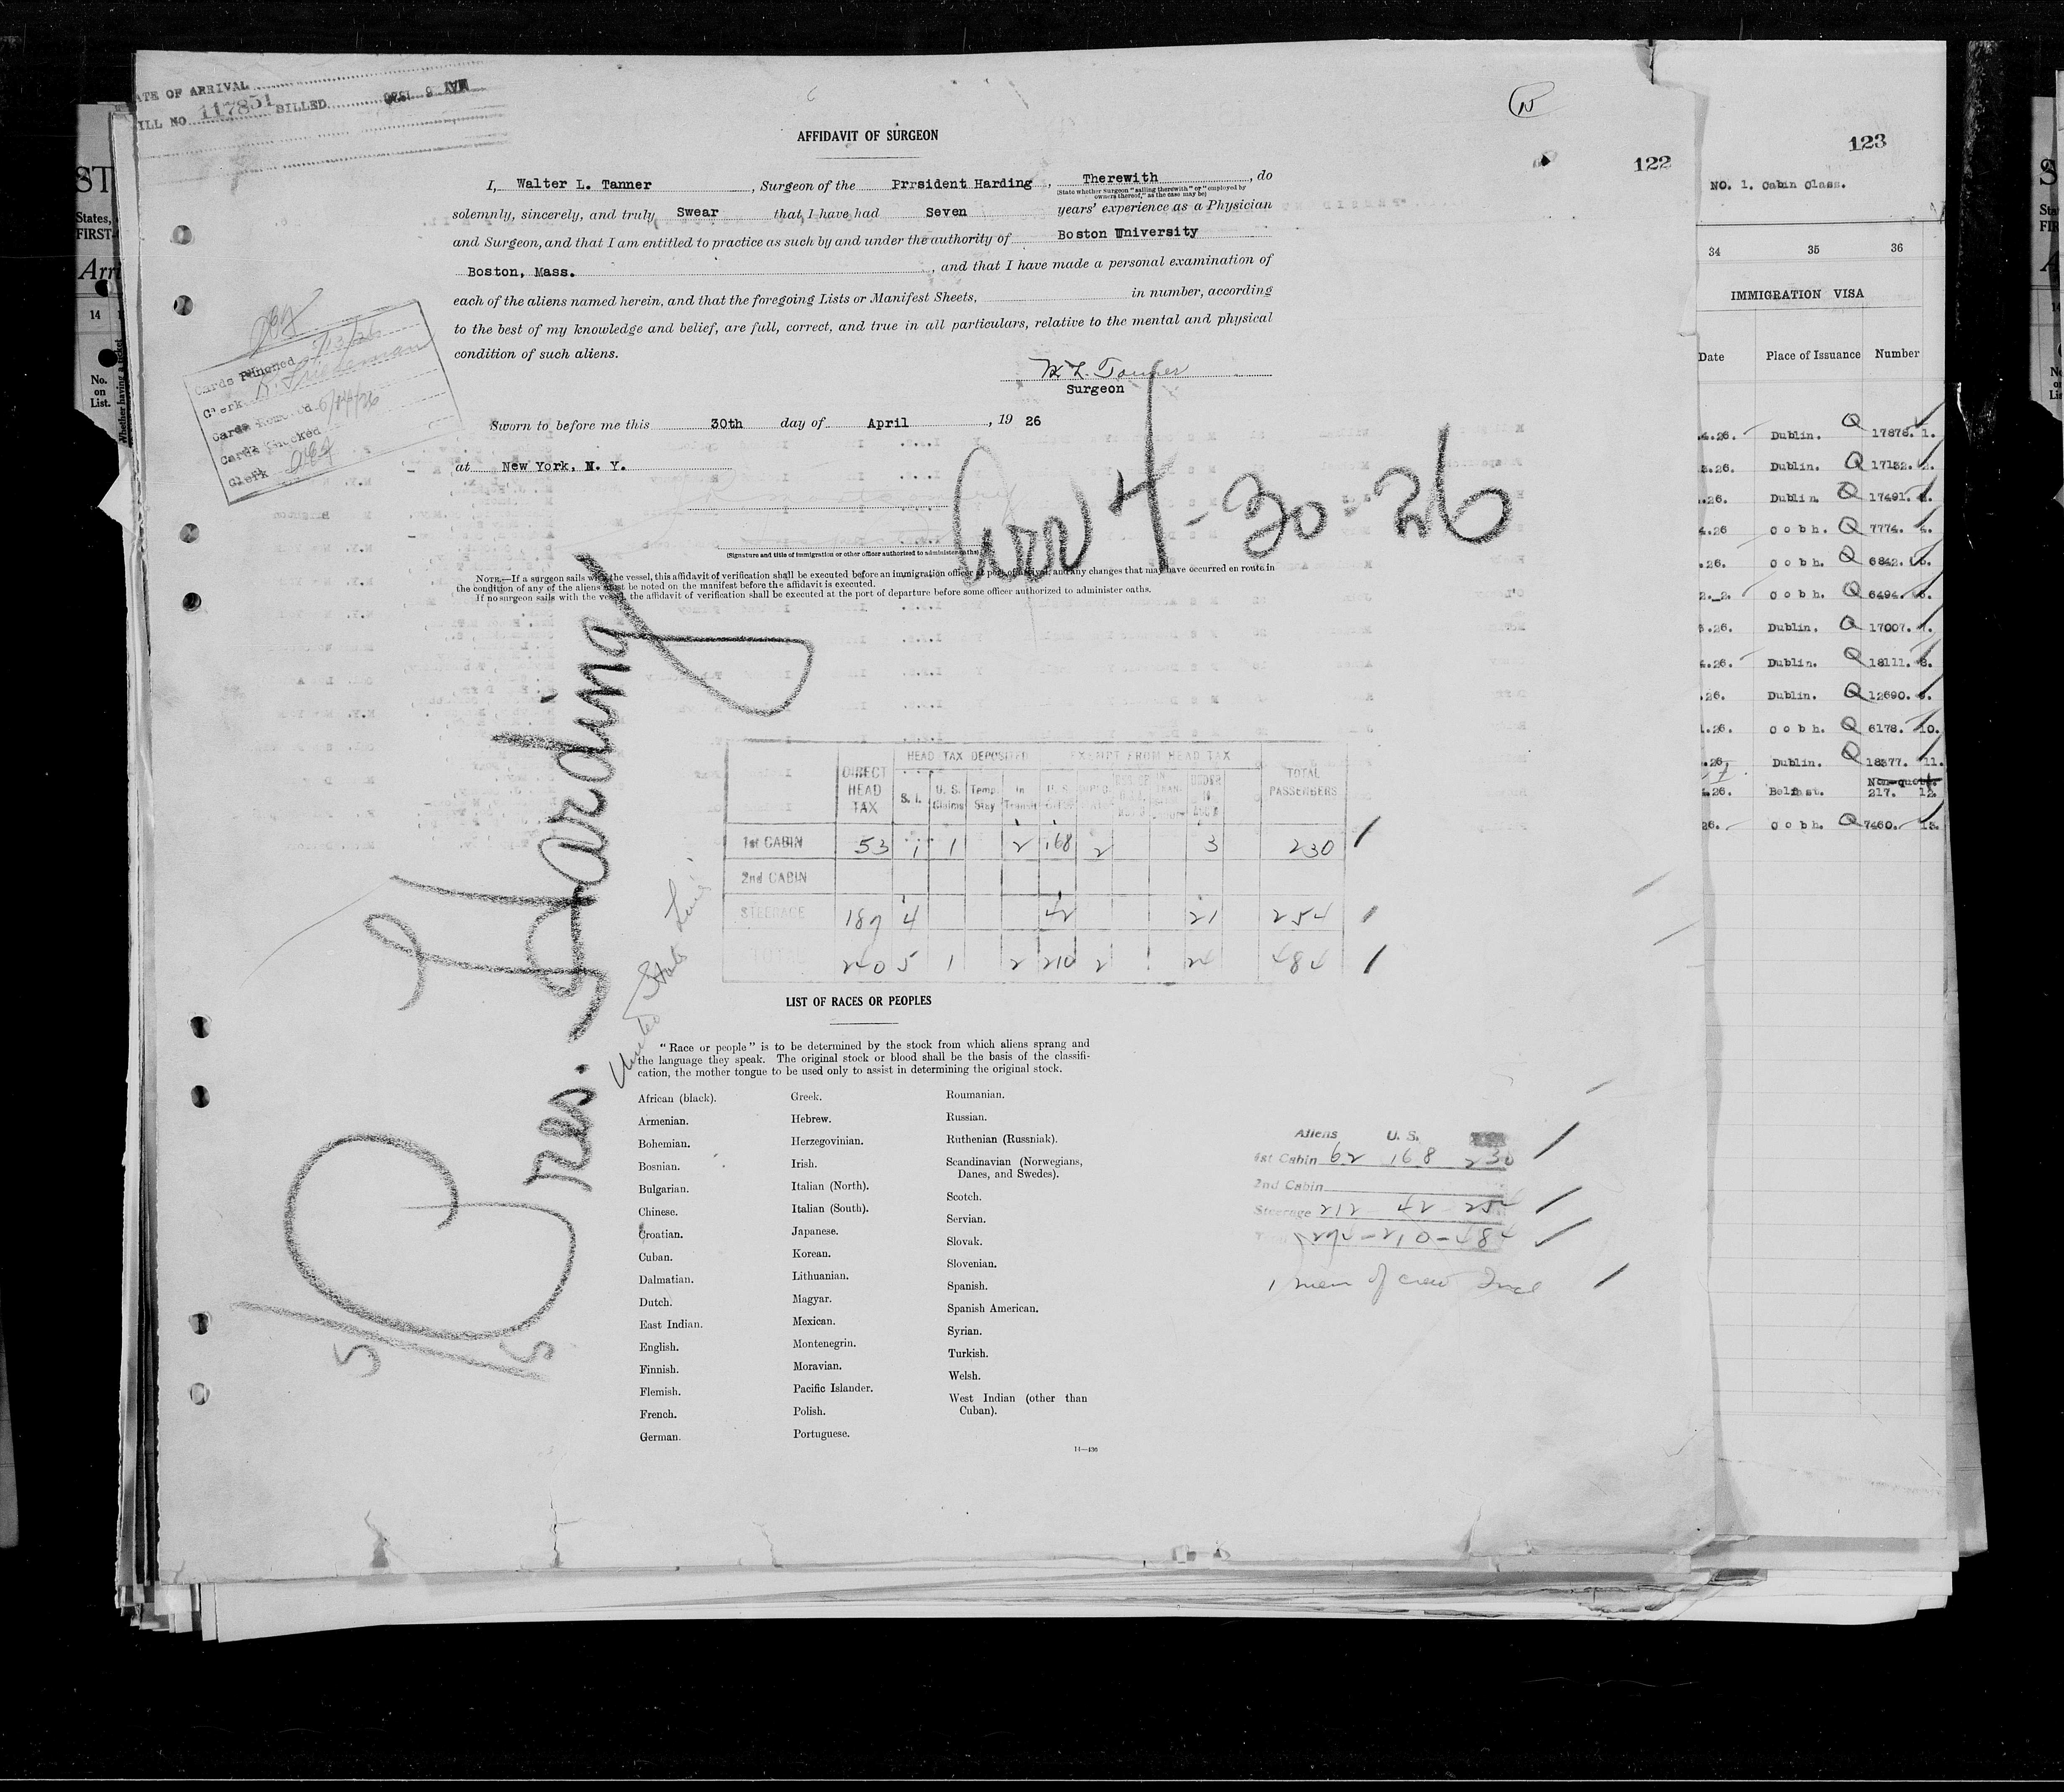 DATE OF ARRIVAL
BILL NO 117851 BILLED MAY 6 1926
AFFIDAVIT OF SURGEON
122
I, Walter L. Tanner, Surgeon of the Prrsident Harding, Therewith, do
(State whether Surgeon "sailing therewith" or "employed by
owners thereof," as the case may be)
solemnly, sincerely, and truly Swear that I have had Seven years' experience as a Physician
and Surgeon, and that I am entitled to practice as such by and under the authority of Boston University
Boston, Mass., and that I have made a personal examination of
each of the aliens named herein, and that the foregoing Lists or Manifest Sheets, in number, according
to the best of my knowledge and belief, are full, correct, and true in all particulars, relative to the mental and physical
condition of such aliens.
W. L. Tanner
Surgeon
Cards Punched 5/13/26
Clerk K. Friedeman
Cards Checked
Clerk
Sworn to before me this 30th day of April, 19 26
at New York, N. Y.
Arr 4-30-26
(Signature and title of immigration or other officer authorized to administer oaths)
NOTE.—If a surgeon sails with the vessel, this affidavit of verification shall be executed before an immigration officer at port of arrival, and any changes that may have occurred en route in
the condition of any of the aliens must be noted on the manifest before the affidavit is executed.
If no surgeon sails with the vessel, the affidavit of verification shall be executed at the port of departure before some officer authorized to administer oaths.
Pres. Harding
United States Lines
5/5
HEAD TAX DEPOSITED EXEMPT FROM HEAD TAX
DIRECT HEAD TAX S. I. U. S. Claims Temp. Stay In Transit U. S. UNDER 16 TOTAL PASSENBERS
1st CABIN 53 1 1 2 168 2 3 230
2nd CABIN
STEERAGE 187 4 42 21 254
TOTAL 240 5 1 2 210 2 24 484
LIST OF RACES OR PEOPLES
"Race or people" is to be determined by the stock from which aliens sprang and
the language they speak. The original stock or blood shall be the basis of the classifi-
cation, the mother tongue to be used only to assist in determining the original stock.
African (black).
Armenian.
Bohemian.
Bosnian.
Bulgarian.
Chinese.
Croatian.
Cuban.
Dalmatian.
Dutch.
East Indian.
English.
Finnish.
Flemish.
French.
German.
Greek.
Hebrew.
Herzegovinian.
Irish.
Italian (North).
Italian (South).
Japanese.
Korean.
Lithuanian.
Magyar.
Mexican.
Montenegrin.
Moravian.
Pacific Islander.
Polish.
Portuguese.
Roumanian.
Russian.
Ruthenian (Russniak).
Scandinavian (Norwegians,
Danes, and Swedes).
Scotch.
Servian.
Slovak.
Slovenian.
Spanish.
Spanish American.
Syrian.
Turkish.
Welsh.
West Indian (other than
Cuban).
14—436
Aliens U. S.
1st Cabin 62 168 230
2nd Cabin
Steerage 212 - 42 - 254
274 - 210 - 484
1 mem of crew Incl
123
NO. 1. Cabin Class.
34 35 36
IMMIGRATION VISA
Date Place of Issuance Number
.4.26. Dublin. Q 17878. 1.
.3.26. Dublin. Q 17132. 2.
.26. Dublin. Q 17491. 3.
4.26 Cobh. Q 7774. 4.
.26. Cobh. Q 6842. 5.
2. 2. Cobh. Q 6494. 6.
.26. Dublin. Q 17007. 7.
4.26. Dublin. Q 18111. 8.
.26. Dublin. Q 12690. 9.
.26. Cobh. Q 6178. 10.
.26. Dublin. Q 18377. 11.
Non-quota.
.26. Belfast. 217. 12.
26. Cobh. Q 7460. 13.
ST
States,
FIRST-
Arri
14
No.
on
List.
Whether having a ticket